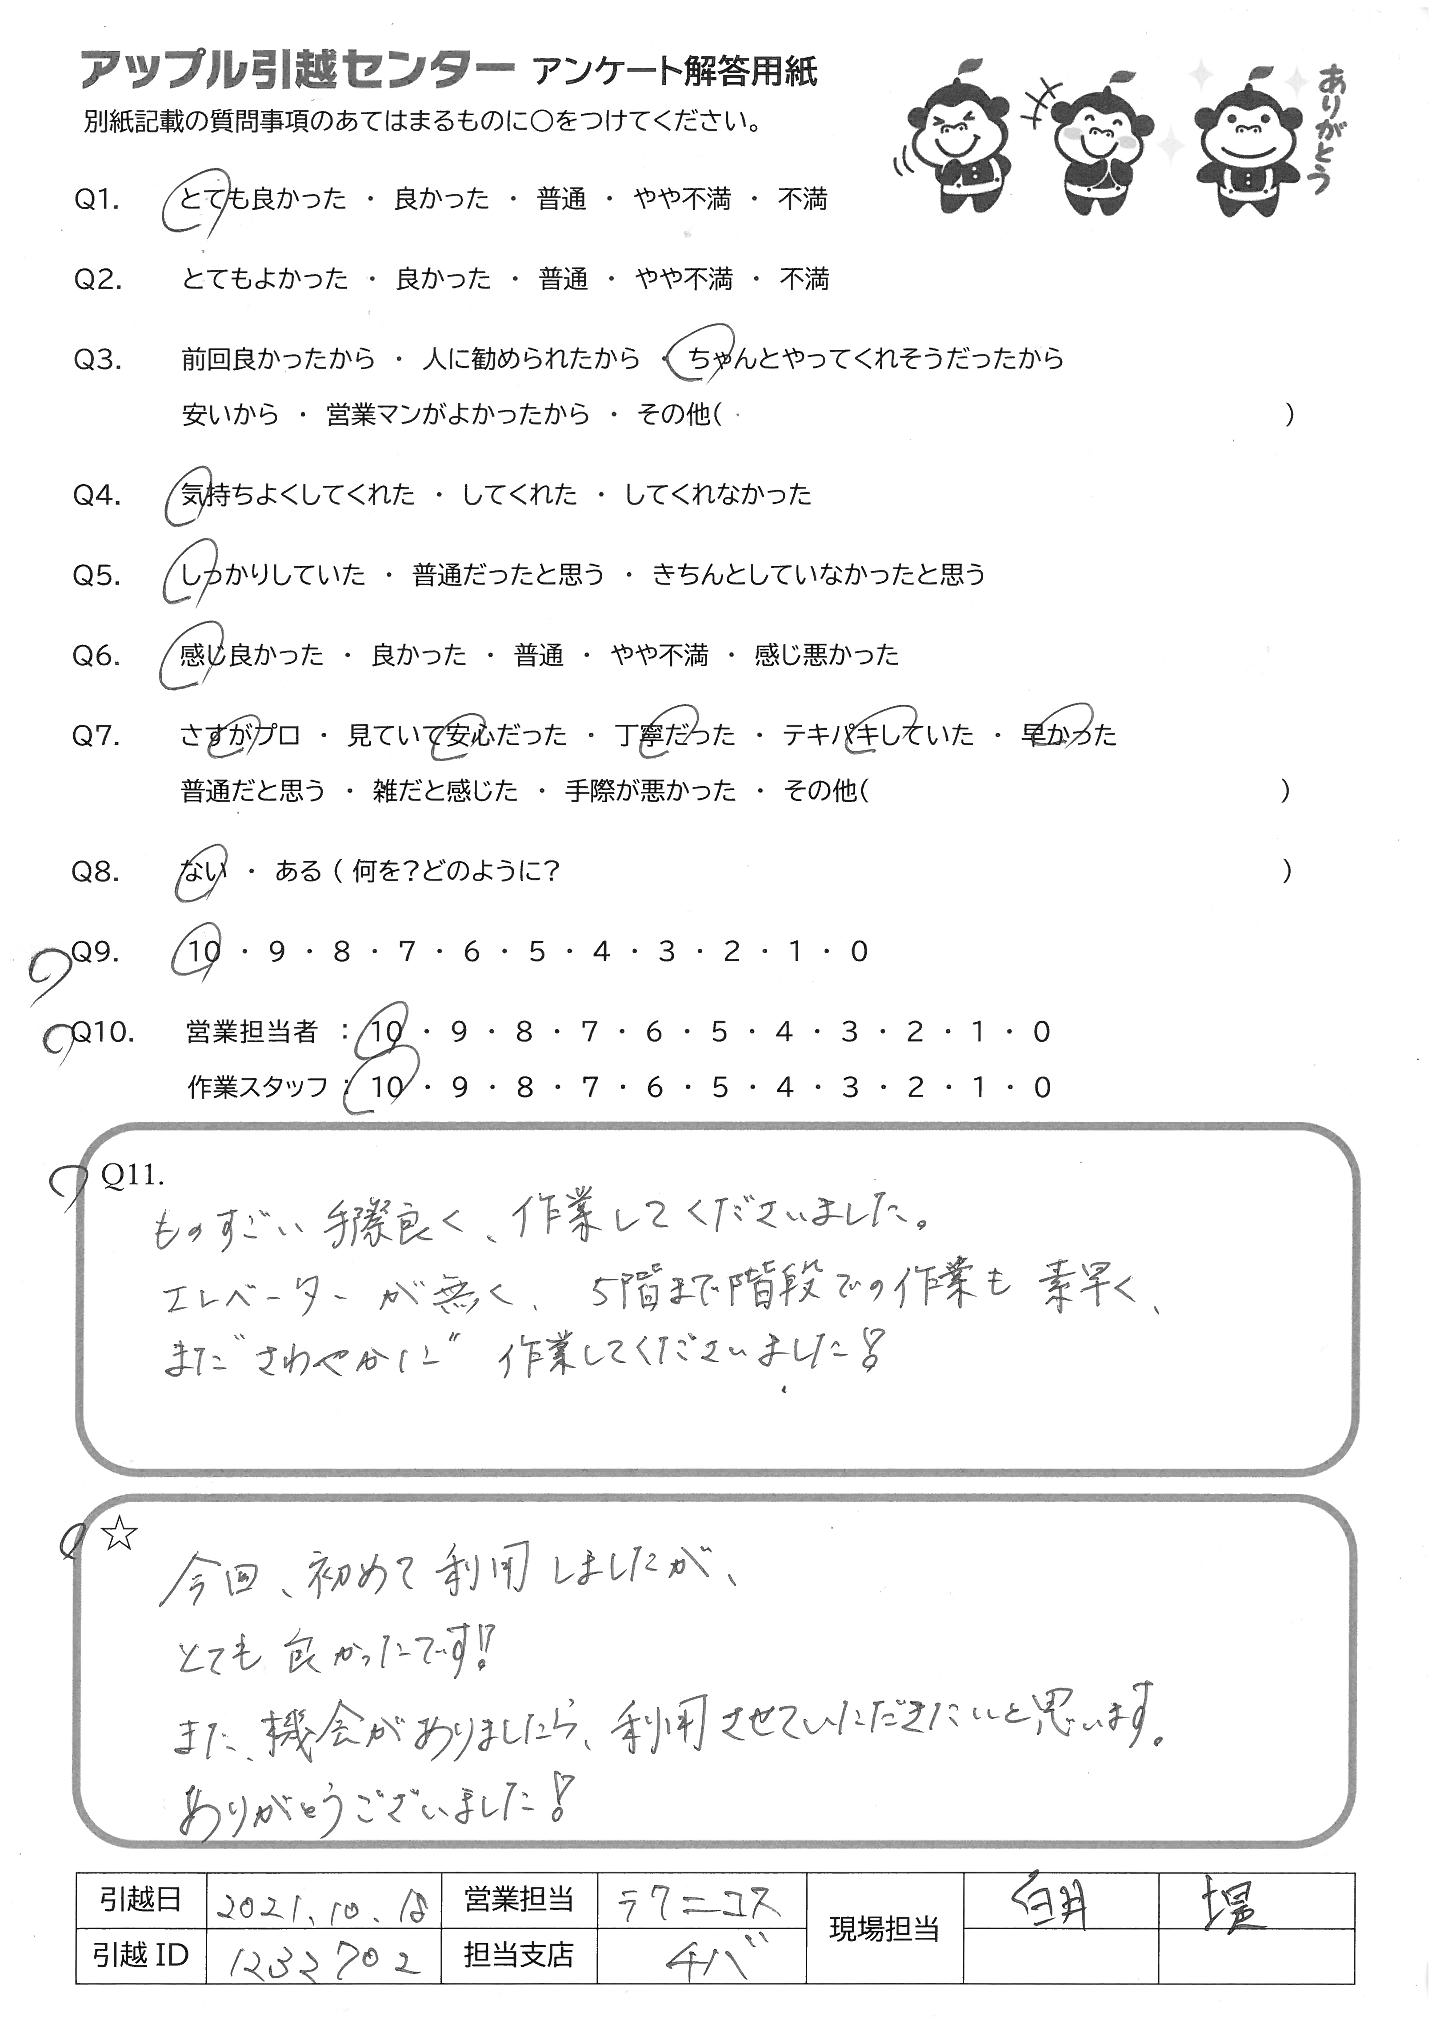 アップル引越センター アンケート解答用紙
別紙記載の質問事項のあてはまるものに○をつけてください。
ありがとう
Q1. とても良かった ・ 良かった ・ 普通 ・ やや不満 ・ 不満
Q2. とてもよかった ・ 良かった ・ 普通 ・ やや不満 ・ 不満
Q3. 前回良かったから ・ 人に勧められたから ・ ちゃんとやってくれそうだったから
安いから ・ 営業マンがよかったから ・ その他( )
Q4. 気持ちよくしてくれた ・ してくれた ・ してくれなかった
Q5. しっかりしていた ・ 普通だったと思う ・ きちんとしていなかったと思う
Q6. 感じ良かった ・ 良かった ・ 普通 ・ やや不満 ・ 感じ悪かった
Q7. さすがプロ ・ 見ていて安心だった ・ 丁寧だった ・ テキパキしていた ・ 早かった
普通だと思う ・ 雑だと感じた ・ 手際が悪かった ・ その他( )
Q8. ない ・ ある ( 何を?どのように? )
Q9. 10 ・ 9 ・ 8 ・ 7 ・ 6 ・ 5 ・ 4 ・ 3 ・ 2 ・ 1 ・ 0
Q10. 営業担当者 : 10 ・ 9 ・ 8 ・ 7 ・ 6 ・ 5 ・ 4 ・ 3 ・ 2 ・ 1 ・ 0
作業スタッフ : 10 ・ 9 ・ 8 ・ 7 ・ 6 ・ 5 ・ 4 ・ 3 ・ 2 ・ 1 ・ 0
Q11.
ものすごい手際良く、作業してくださいました。
エレベーターが無く、5階まで階段での作業も素早く、
また"さわやかに"作業してくださいました!
☆
今回、初めて利用しましたが、
とても良かったです!
また、機会がありましたら、利用させていただきたいと思います。
ありがとうございました!
引越日 2021.10.18 営業担当 ラクニコス 現場担当 臼井 堤
引越ID 1232702 担当支店 チバ